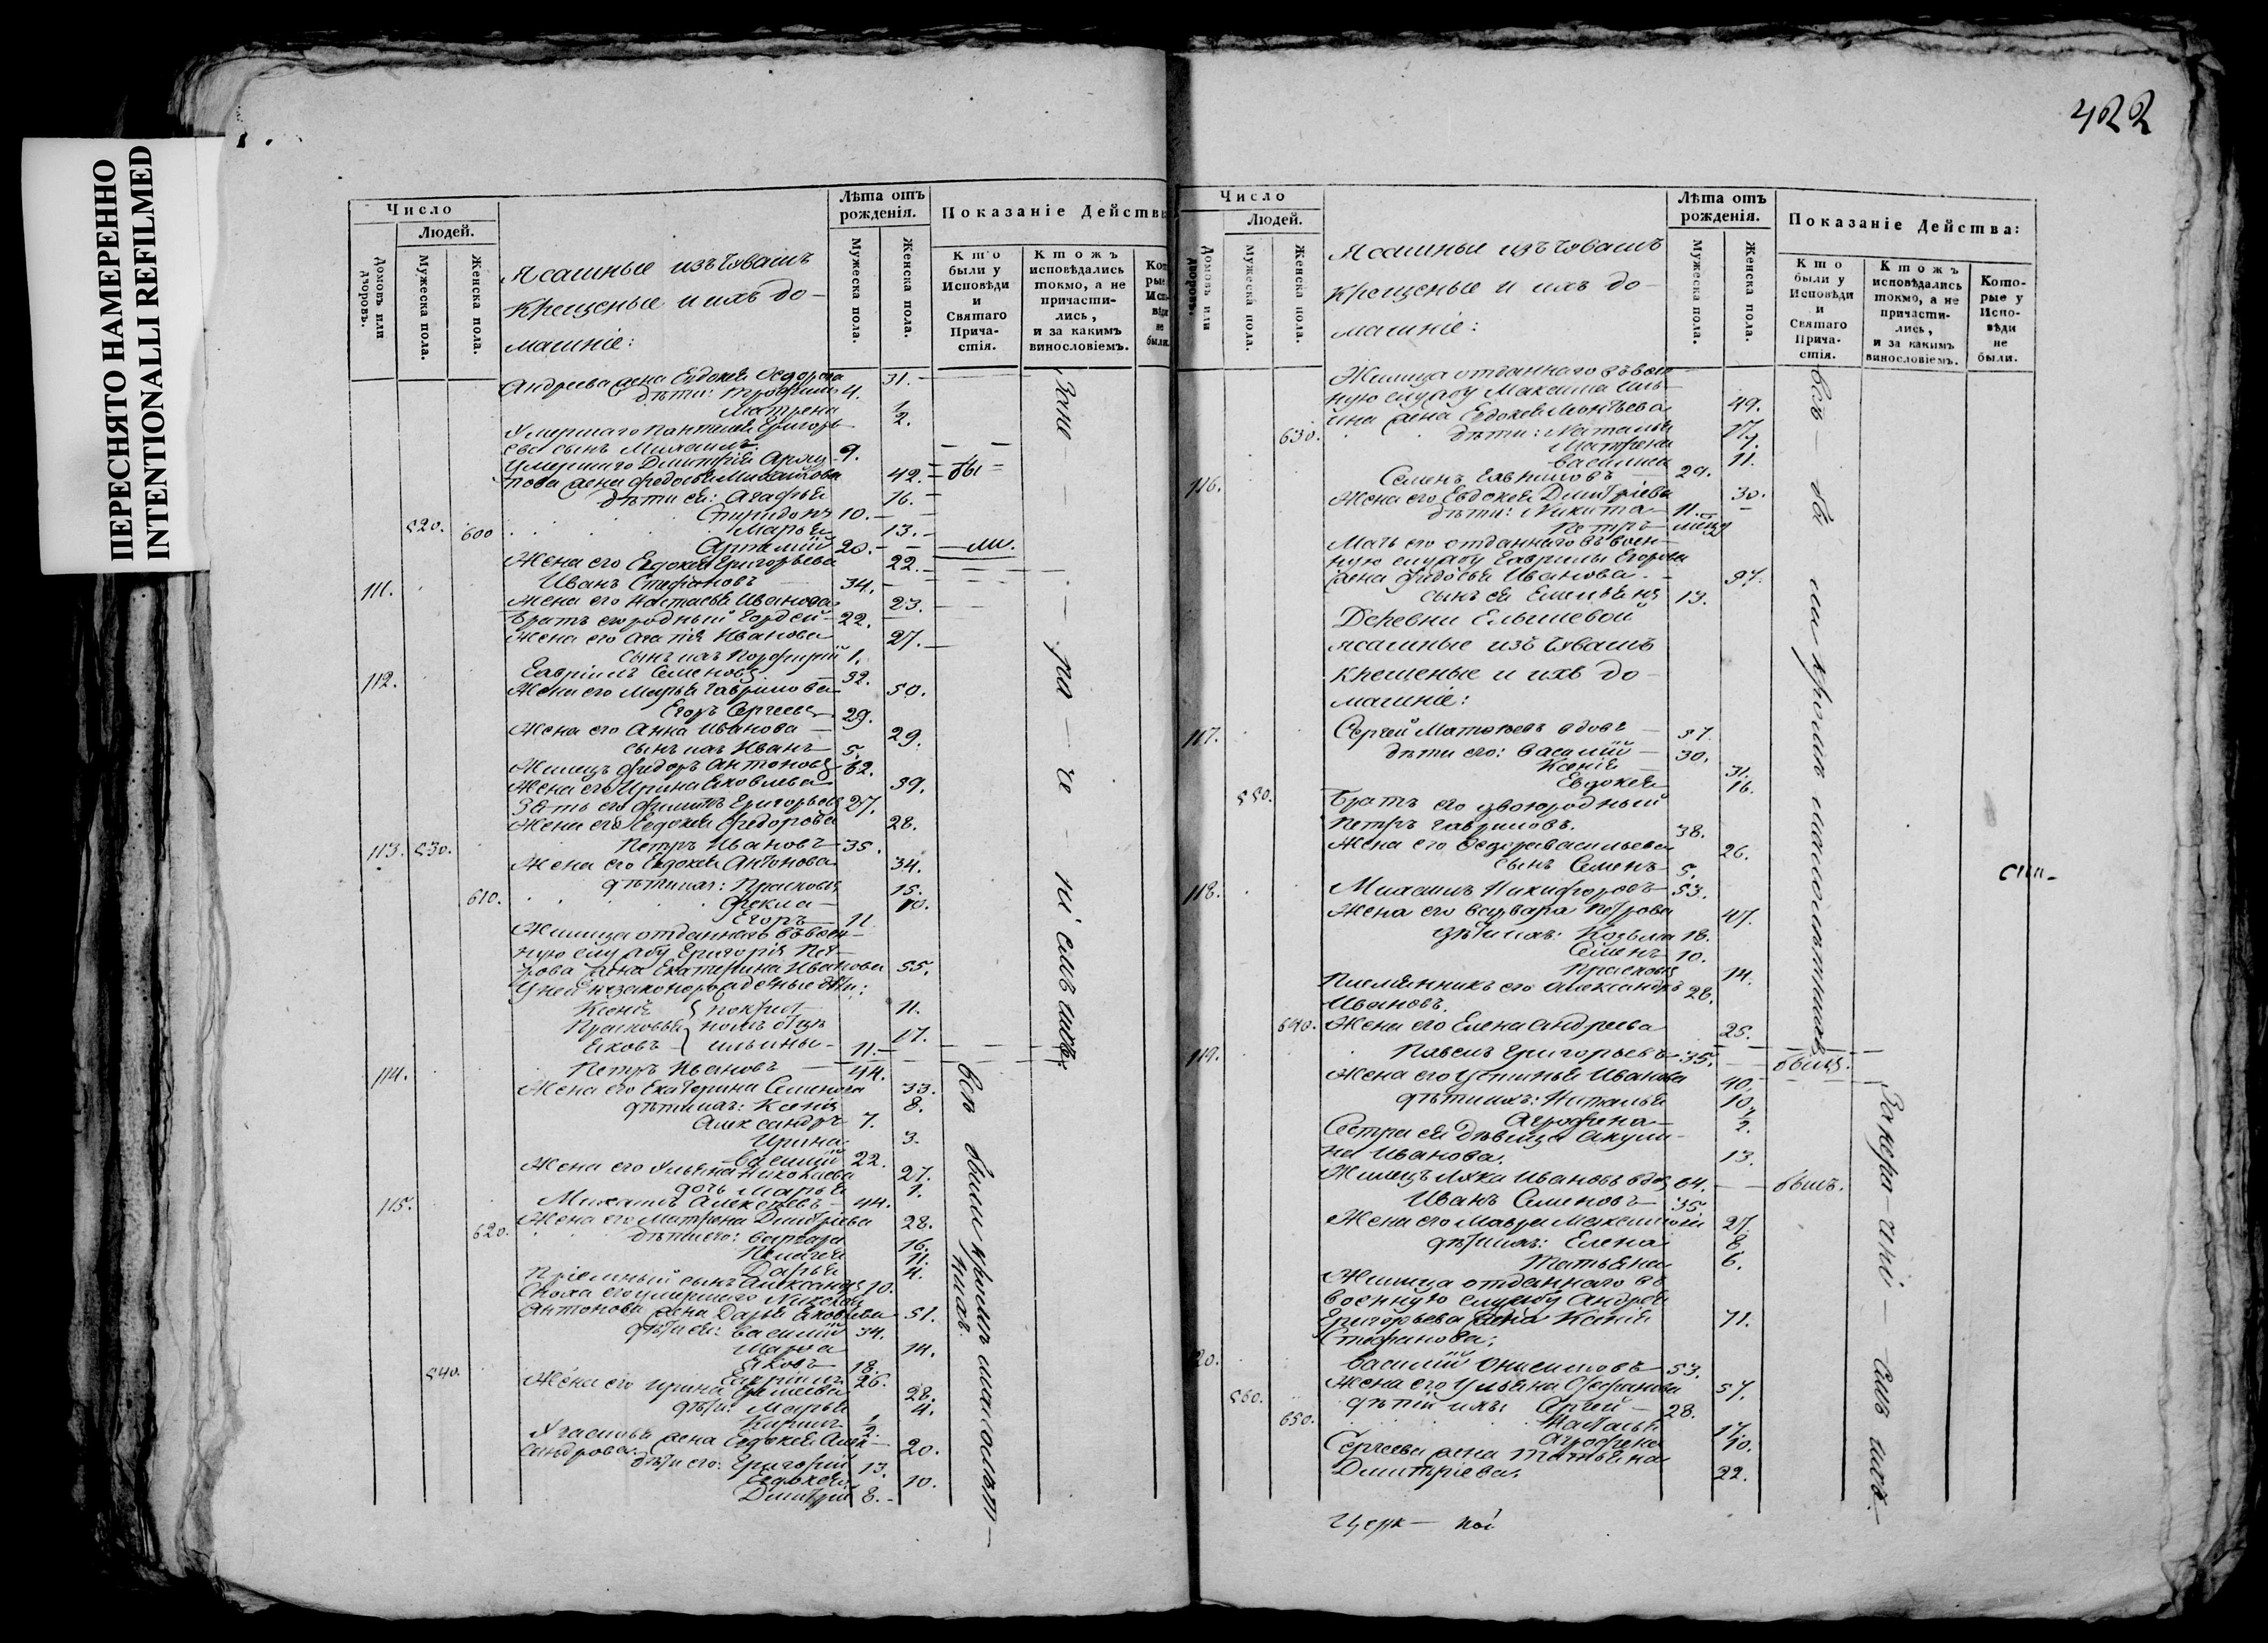 ПЕРЕСНЯТО НАМЕРЕННО
INTENTIONALLI REFILMED
422
Число
Людей.
Домовъ или дворовъ.
Мужеска пола.
Женска пола.
Ясашные изъ Чувашъ
крещеные и ихъ до-
машніе:
Лѣта отъ рожденія.
Мужеска пола.
Женска пола.
Показаніе Действ
Кто были у Исповѣди и Святаго Причастія.
Ктожъ исповѣдались токмо, а не причастились, и за какимъ винословіемъ.
Андреева жена Евдокея Ѳедорова 31.
дѣти: 4.
Матрена 1/2.
Умершаго Григорь-
ева сынъ Михаилъ 9.
Умершаго Дмитрія
жена Федосья Михайлова 42. бы
дѣти ея: Агафья 16.
Спиридонъ 10.
520. 600 Марья 13.
Арталій 20. ли.
Жена его Евдокея Григорьева 22.
111. Иванъ Стефановъ 34.
Жена его Настасья Иванова 23.
Братъ его родный Гордей 22.
Жена его Агапія Иванова 27.
Сынъ ихъ Порфирій 1.
112. Гавріилъ Семеновъ 32.
Жена его Марья Гаврилова 50.
Егоръ Сергеевъ 29.
Жена его Анна Иванова 29.
сынъ ихъ Иванъ 5.
Жилецъ Федоръ Антоновъ 62.
Жена его Ирина Яковлева 39.
Зять его Филиппъ Григорьевъ 27.
Жена его Евдокея Федорова 28.
113. 530. Петръ Ивановъ 35.
Жена его Евдокея Антонова 34.
дѣти ихъ: Прасковья 15.
610. Фекла 10.
Егоръ 11.
Жилица отданнаго въ воен-
ную службу Григорія Пет-
рова жена Екатерина Иванова 55.
У ней незаконорожденые дѣти:
Ксенія 11.
Прасковья 17.
Яковъ Ильины 11.
114. Петръ Ивановъ 44.
Жена его Екатерина Семенова 33.
дѣти ихъ: Ксенія 8.
Александръ 7.
Ирина 3.
Василій 22.
Жена его Ульяна Николаева 27.
дочь Марья 1.
115. Михаилъ Алексеевъ 44.
Жена его Матрена Дмитріева 28.
620. дѣти его: Варвара 16.
Пелагея 11.
Дарья 4.
Пріемный сынъ Александръ 10.
Сноха его умершаго Николая
Антонова жена Дарья Яковлева 51.
дѣти ея: Василій 34.
Марѳа 14.
Яковъ 18.
540. Гавріилъ 26.
Жена его Ирина 28.
дѣти: Марья 4.
Кирилъ 1/2.
жена Евдокея Алек-
сандрова 20.
дѣти его: Григорій 13.
Евдокея 10.
Дмитрій 8.
Всѣ были кромѣ малолѣт-
нихъ.
Число
Людей.
Домовъ или дворовъ.
Мужеска пола.
Женска пола.
Ясашные изъ Чувашъ
крещеные и ихъ до-
машніе:
Лѣта отъ рожденія.
Мужеска пола.
Женска пола.
Показаніе Действа:
Кто были у Исповѣди и Святаго Причастія.
Ктожъ исповѣдались токмо, а не причастились, и за какимъ винословіемъ.
Которые у Исповѣди не были.
Жилица отданнаго въ воен-
ную службу Максима Иль-
ина жена Евдокея Моисѣева 49.
630. дѣти: Наталья
Матрена
Василиса 11.
116. Семенъ Гавриловъ 29.
Жена его Евдокея Дмитріева 30.
дѣти: Никита 11.
Петръ
Мать его отданнаго въ воен-
ную службу Гаврилы Егорова
жена Федосья Иванова
сынъ ея Емельянъ 13.
Деревни Ельшевой
ясашные изъ Чувашъ
крещеные и ихъ до-
машніе:
117. Сергей вдовъ 57.
дѣти его: Василій 30.
Ксенія 31.
Евдокея 16.
550. Братъ его двоюродный
Петръ Гавриловъ. 38.
Жена его Ѳедора Васильева 26.
сынъ Семенъ 5.
118. Михаилъ Никифоровъ 53.
Жена его Варвара Петрова 47.
дѣти ихъ: Козьма 18.
Семенъ 10.
Прасковья 14.
Племянникъ его Александръ 28.
Ивановъ.
640. Жена его Елена Андреева 25.
119. Павелъ Григорьевъ 35. былъ.
Жена его Устинья Иванова 40.
дѣти ихъ: Наталья 10.
Агрофена 1/2.
Сестра ея дѣвица Акули-
на Иванова. 13.
Жилецъ Лука Ивановъ вдов 64. былъ.
Иванъ Семеновъ 35.
Жена его Мавра Максимова 27.
дѣти ихъ: Елена 8.
Татьяна 6.
Жилица отданнаго въ
военную службу Андрея
Григорьева жена Ксенія 71.
Стефанова.
120. Василій Онисимовъ 53.
Жена его Ульяна Стефанова 57.
560. дѣти ихъ: Сергей 28.
650. Наталья 17.
Агрофена 10.
Сергеева жена Татьяна
Дмитріева. 22.
Всѣ бы ли кромѣ малолѣтнихъ
Церк- ной